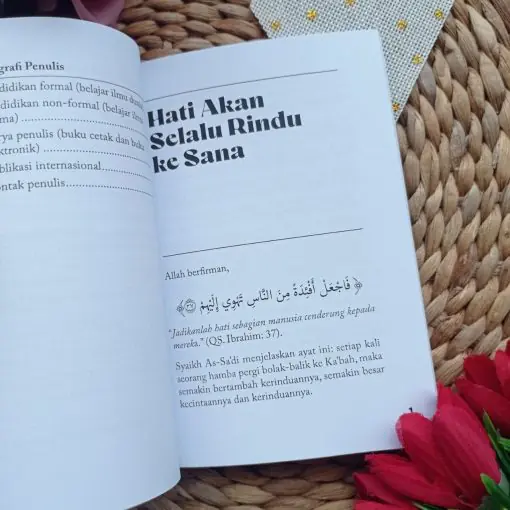 grafi Penulis
didikan formal (belajar ilmu
didikan non-formal (belajar
ma)
ya penulis (buku cetak dan buku
ktronik)
blikasi internasional
ntak penulis
Hati Akan
Selalu Rindu
ke Sana
Allah berfirman,
﴿ فَاجْعَلْ أَفْئِدَةً مِنَ النَّاسِ تَهْوِي إِلَيْهِمْ ﴾
"Jadikanlah hati sebagian manusia cenderung kepada
mereka." (QS. Ibrahim: 37).
Syaikh As-Sa'di menjelaskan ayat ini: setiap kali
seorang hamba pergi bolak-balik ke Ka'bah, maka
semakin bertambah kerinduannya, semakin besar
kecintaannya dan kerinduannya.